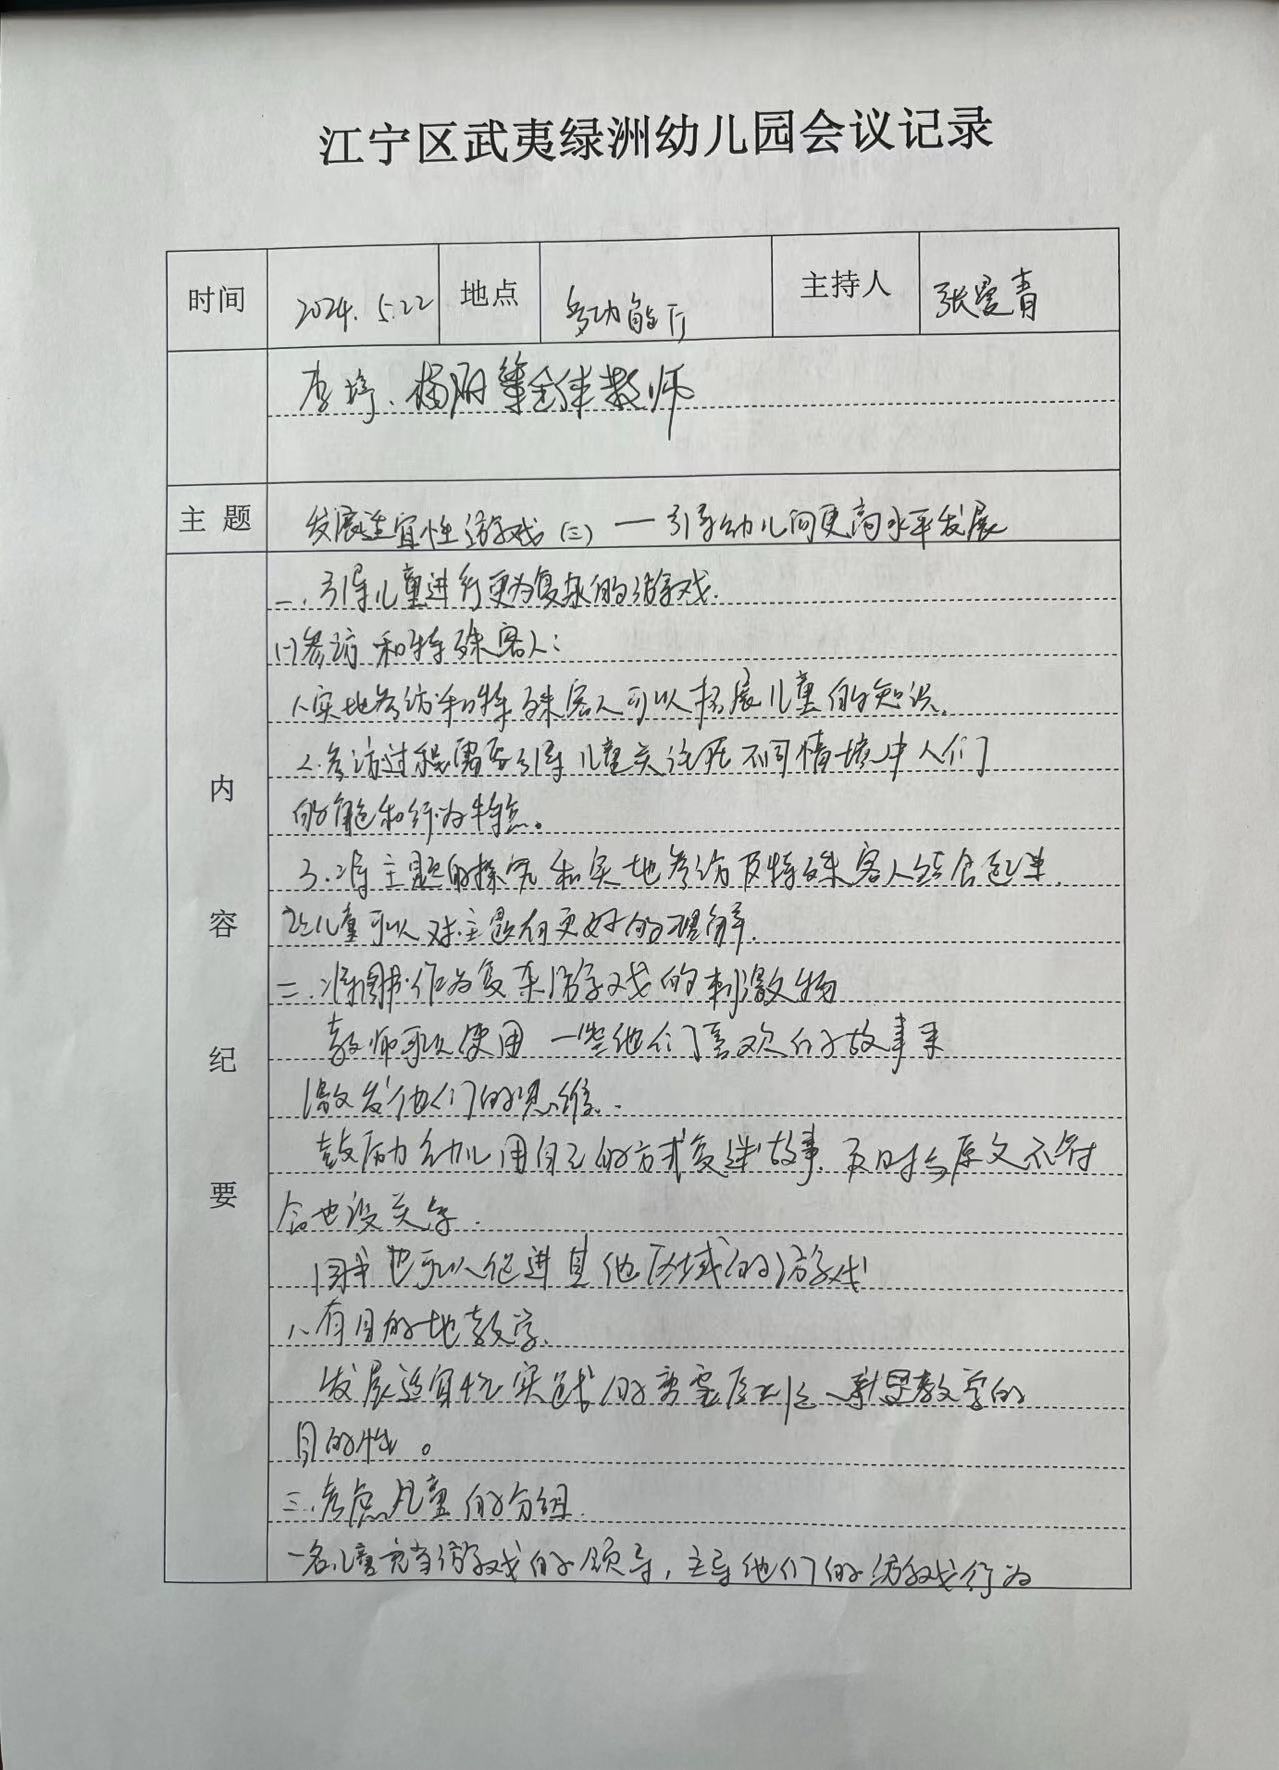 江宁区武夷绿洲幼儿园会议记录
时间 2024. 5.22 地点 多功能厅 主持人 张爱青
李婷、杨丽等全体教师
主题 发展适宜性游戏(三) — 引导幼儿向更高水平发展
内容纪要
一.引导儿童进行更为复杂的游戏.
(1)参访和特殊客人:
1、实地参访和特殊客人可以拓展儿童的知识.
2.参访过程需要引导儿童关注在不同情境中人们
的角色和行为特点。
3.将主题的探究和实地参访及特殊客人结合起来.
让儿童可以对主题有更好的理解.
二.将图书作为复杂游戏的刺激物
教师可以使用一些他们喜欢的故事来
激发他们的思维.
鼓励幼儿用自己的方式复述故事.及时与原文不符
合也没关系.
图书也可以促进其他区域的游戏
1、有目的地教学.
发展适宜性实践的重要原则之一就是教学的
目的性。
三.考虑儿童的分组.
一名儿童充当游戏的领导,主导他们的游戏行为